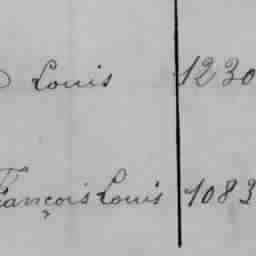 Louis 1230
François Louis 1083